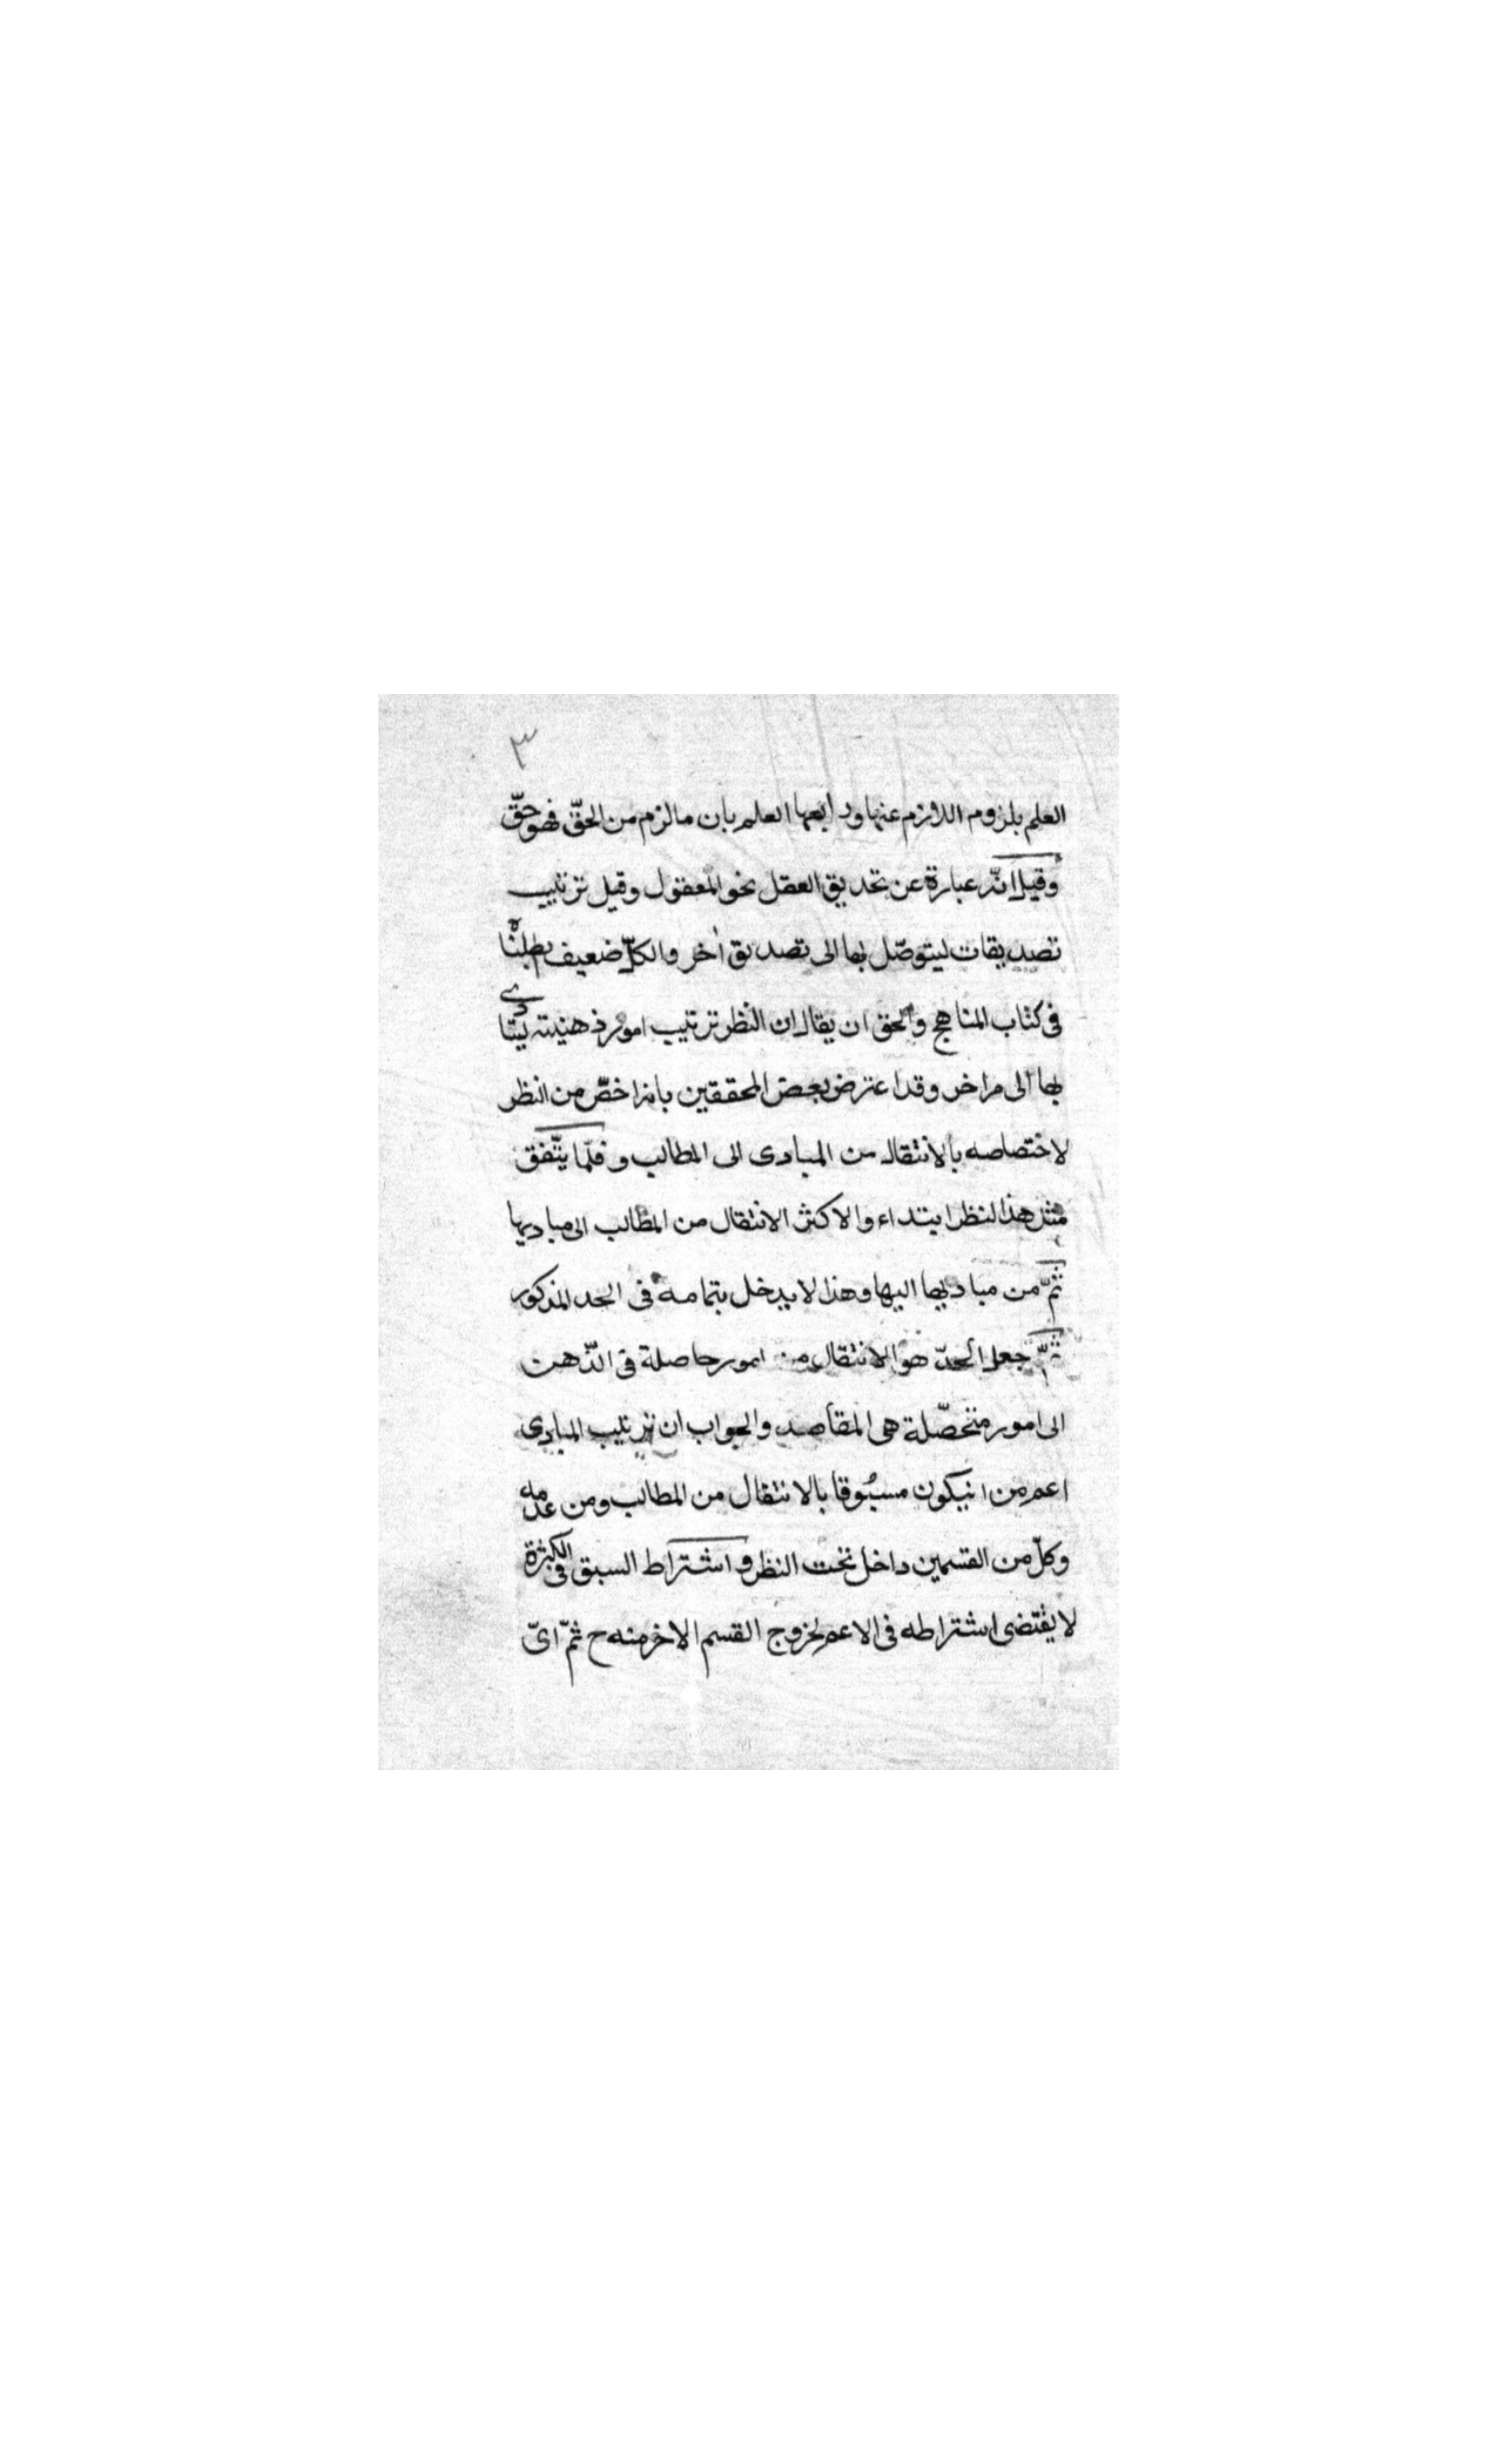 ٣
العلم بلزوم اللازم عنها ورابعها العلم بان ما لزم من الحقّ فهو حقّ
وقيل انّه عبارة عن تحديق العقل نحو المعقول وقيل ترتيب
تصديقات ليتوصّل بها الى تصديق أخر والكلّ ضعيف
فى كتاب المناهج والحق ان يقال ان النظر ترتيب امور ذهنيته ليتأدى
بها الى مر اخر وقد اعترض بعض المحققين بانه اخصّ من النظر
لاختصاصه بالانتقال من المبادى الى المطالب و قلّما يتّفق
مثل هذا النظر ابتداء والاكثر الانتقال من المطالب الى مباديها
ثمّ من مباديها اليها وهذا لا يدخل بتمامه فى الحد المذكور
ثمّ جعل الحدّ هو الانتقال من امور حاصلة فى الذّهن
الى امور متحصّلة هى المقاصد والجواب ان ترتيب المبادى
اعم من انيكون مسبوقا بالانتقال من المطالب ومن عدمه
وكلّ من القسمين داخل تحت النظر و اشتراط السبق فى الكثرة
لا يقتضى اشتراطه فى الاعم لخروج القسم الاخر منه ح ثمّ اىّ